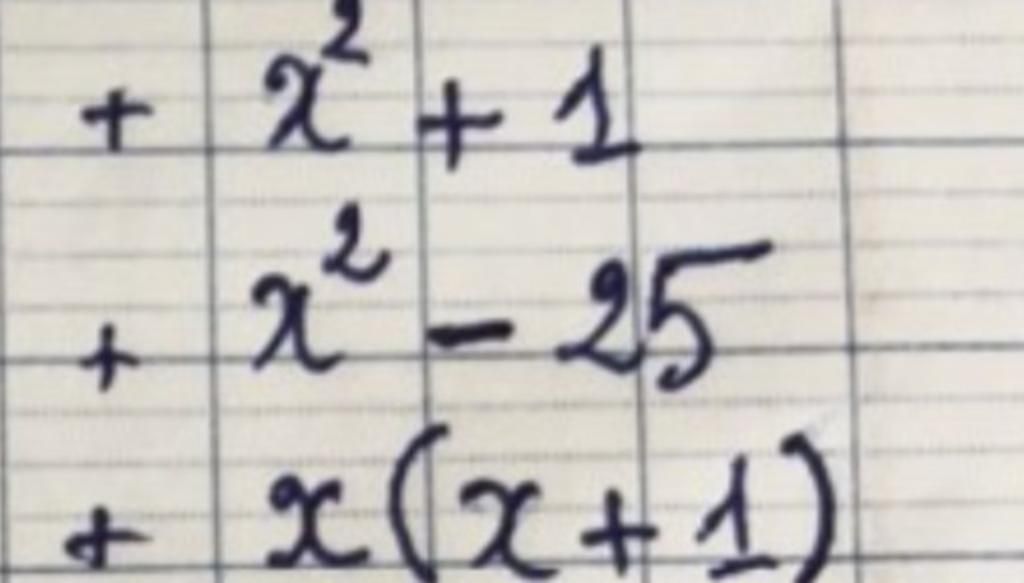 + x² + 1
+ x² - 25
+ x(x+1)